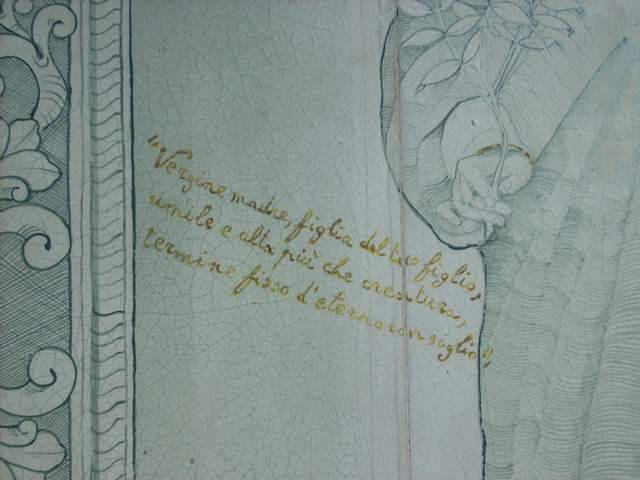 "Vergine madre, figlia del tuo figlio,
umile e alta più che creatura,
termine fisso d'eterno consiglio",